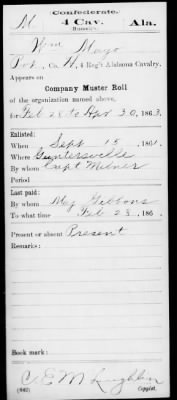 Confederate.
M 4 Cav. Ala.
Wm Mayo
Co. H, 4 Reg't Alabama Cavalry.
Appears on
Company Muster Roll
of the organization named above,
for Feb 28 to Apr 30, 1863.
Enlisted:
When Sept 15, 186
Where Guntersville
By whom Capt Milner
Period
Last paid:
By whom Maj Gibbons
To what time Feb 28, 186
Present or absent Present
Remarks:
Book mark:
(642) Copyist.